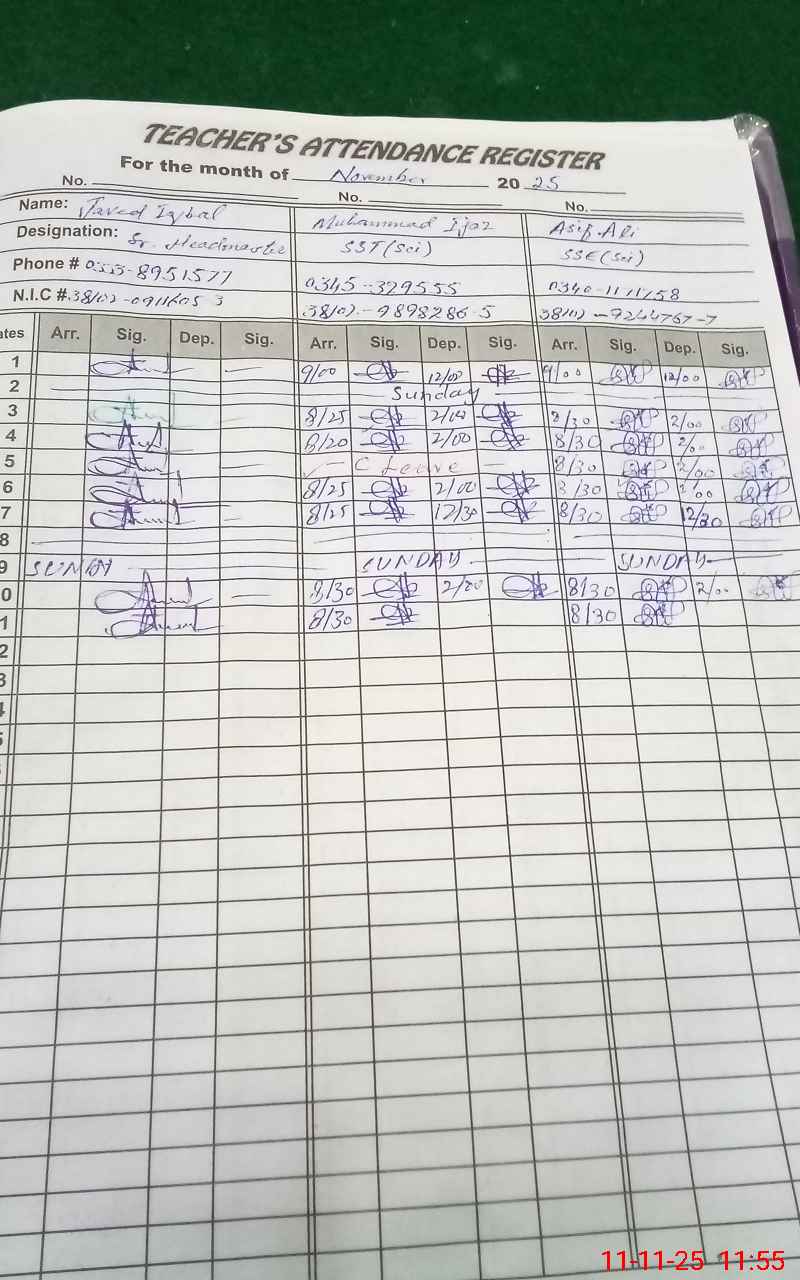 TEACHER'S ATTENDANCE REGISTER
For the month of November 2025
No. No. No.
Name: Javed Iqbal Muhammad Ijaz Asif Ali
Designation: Sr. Headmaster SST (Sci) SSE (Sci)
Phone # 0333-8951577 0345-329555 0340-1111158
N.I.C # 38102-0911605 3 38102-9898286-5 38102-9244767-7
ates Arr. Sig. Dep. Sig. Arr. Sig. Dep. Sig. Arr. Sig. Dep. Sig.
1 — 9/00 12/00 9/00 12/00
2 Sunday
3 8/25 2/00 8/30 2/00
4 8/20 2/00 8/30 2/00
5 — C Leave — 8/30 2/00
6 — 8/25 2/00 8/30 2/00
7 — 8/25 12/30 8/30 12/30
8
9 SUNDAY SUNDAY
0 — 8/30 2/00 8/30 2/00
1 8/30 8/30
2
3
4
5
11-11-25 11:55